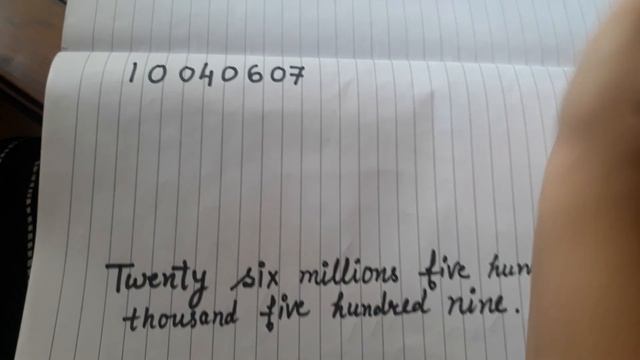 10040607
Twenty six millions five hun
thousand five hundred nine.